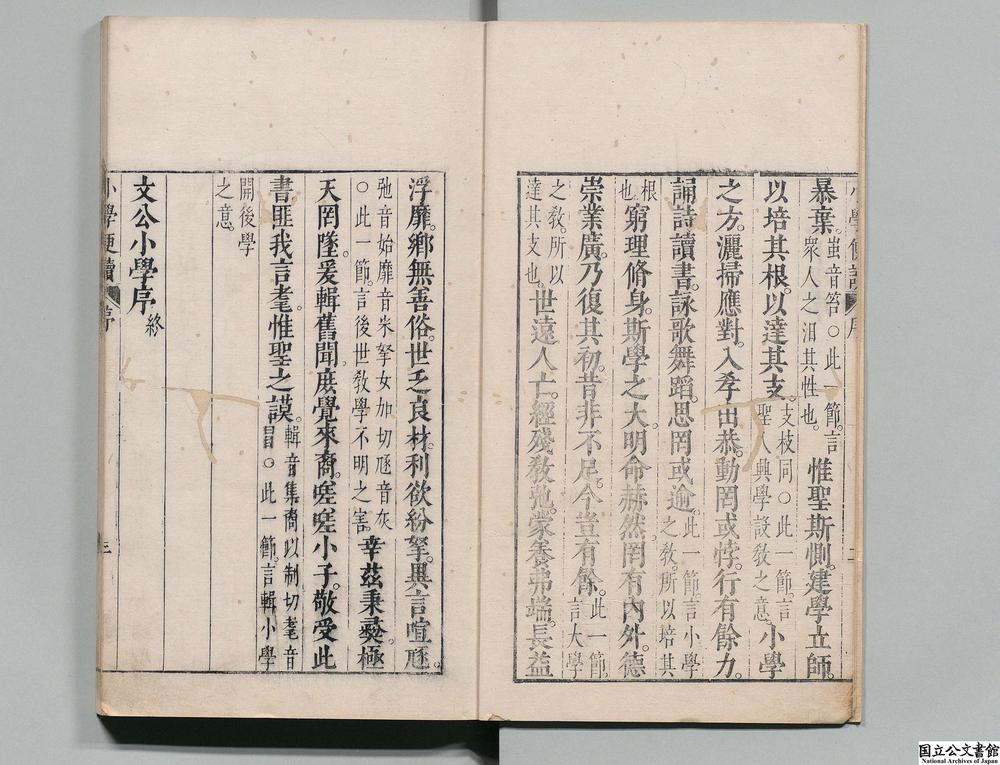 暴棄。蚩音笞○此一節。言衆人之汩其性也。惟聖斯惻。建學立師。
以培其根。以達其支。支枝同○此一節。言聖人興學設敎之意。小學
之方。灑掃應對。入孝出恭。動罔或悖。行有餘力。
誦詩讀書。詠歌舞蹈。思罔或逾。此一節言小學之敎。所以培其
根也。窮理脩身。斯學之大。明命赫然。罔有內外。德
崇業廣。乃復其初。昔非不足。今豈有餘。此一節。言大學
之敎。所以達其支也。世遠人亡。經殘敎弛。蒙養弗端。長益
浮靡。鄕無善俗。世乏良材。利欲紛拏。異言喧豗。
弛音始靡音米拏女加切豗音灰○此一節。言後世敎學不明之害。幸茲秉彝。極
天罔墜。爰輯舊聞。庶覺來裔。嗟嗟小子。敬受此
書。匪我言耄。惟聖之謨。輯音集裔以制切耄音冒。○此一節。言輯小學
開後學之意。
文公小學序終
小學便讀 序 三
国立公文書館
National Archives of Japan